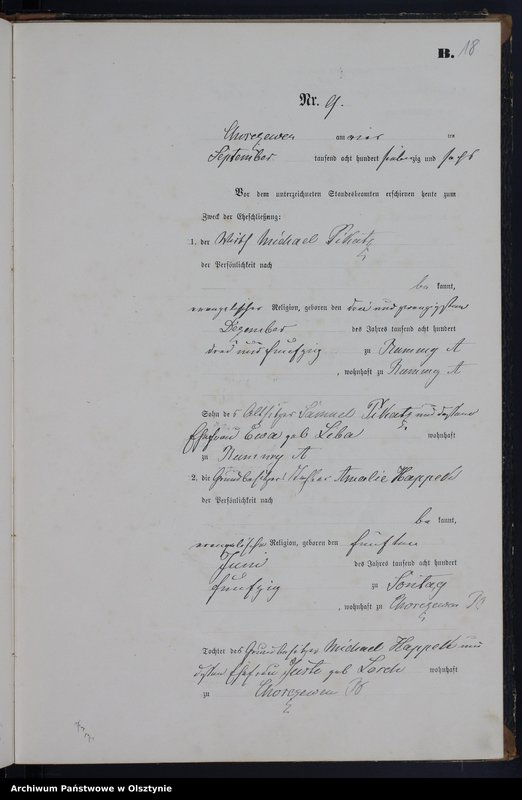 B. 18
Nr. 9.
Chorczewen am vier ten
September tausend acht hundert siebenzig und sechs
Vor dem unterzeichneten Standesbeamten erschienen heute zum
Zweck der Eheschließung:
1. der Wirth Michael Pikatz
der Persönlichkeit nach
be kannt,
evangelischer Religion, geboren den drei und zwanzigsten
Dezember des Jahres tausend acht hundert
drei und fünfzig zu Nummy A
, wohnhaft zu Nummy A
Sohn des Altsitzer Samuel Pikatz und dessen
Ehefrau Ewa geb Leba wohnhaft
zu Nummy A
2. die Grundbesitzer Tochter Amalie Happeck
der Persönlichkeit nach
be kannt,
evangelische Religion, geboren den fünften
Juni des Jahres tausend acht hundert
fünfzig zu Sontag
, wohnhaft zu Chorczewen B
Tochter des Grundbesitzer Michael Happeck und
dessen Ehefrau Juste geb Lorch wohnhaft
zu Chorczewen B
Archiwum Państwowe w Olsztynie